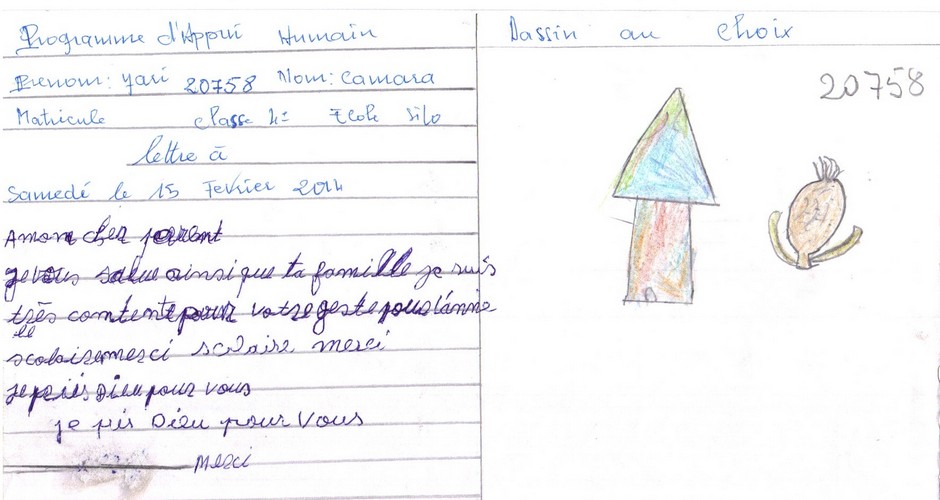 Programme d'Appui Humain
Prenom: Yari 20758 Nom: Camara
Matricule classe 4e Ecole Silo
lettre à
Samedé le 15 Fevrier 2014
A mon cher parent
je vous salue ainsi que ta famille je suis
très contente pour votre geste pour l'année
scolaise merci scolaire merci
je priés Dieu pour vous
je pris Dieu pour Vous
Merci
Dassin au choix
20758